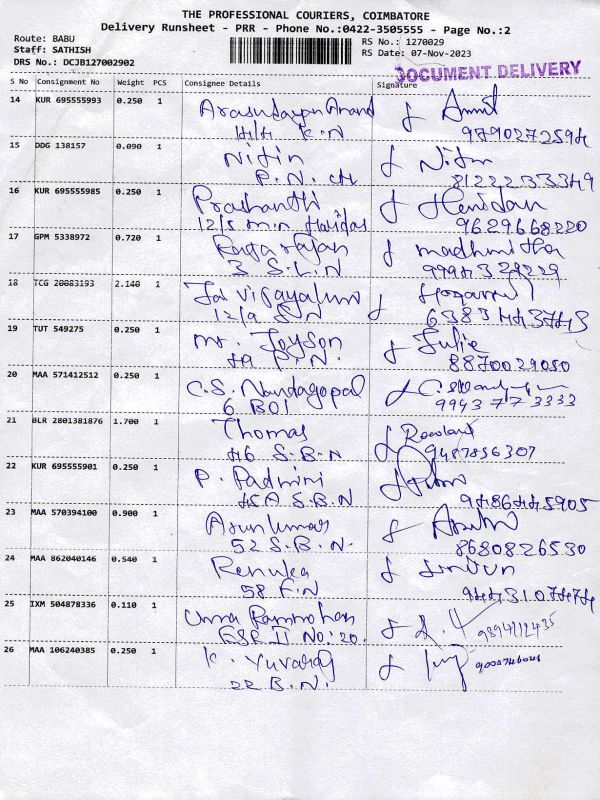 THE PROFESSIONAL COURIERS, COIMBATORE
Delivery Runsheet - PRR - Phone No.:0422-3505555 - Page No.:2
Route: BABU
Staff: SATHISH
DRS No.: DCJB127002902
RS No.: 1270029
RS Date: 07-Nov-2023
DOCUMENT DELIVERY
S No Consignment No Weight PCS Consignee Details Signature
14 KUR 695555993 0.250 1 Anand
K.N
9790272594
15 DDG 138157 0.090 1 Nitin Nitin
P.N.
8122233349
16 KUR 695555985 0.250 1 Prashanthi
12/5 min Haridas 9629668220
17 GPM 5338972 0.720 1 Ragarajan madhmitha
3 S.L.N
18 TCG 20083193 2.140 1 Jai
12/9 S.N 6383443743
19 TUT 549275 0.250 1 Mr. Joyson Julie
49 P.N. 8870029050
20 MAA 571412512 0.250 1 C.S. Nandagopal
6 BOI 9943773333
21 BLR 2801381876 1.700 1 Thomas Rowland
46 S.B.N 9487856307
22 KUR 695555901 0.250 1 P. Padmini
45A S.B.N 9486445905
23 MAA 570394100 0.900 1 Arunkumar
52 S.B.N. 8680826530
24 MAA 862040146 0.540 1 Renuka
58 F.N 9443107474
25 IXM 504878336 0.110 1 Uma Rammohan
GSR II No: 20. 9894212435
26 MAA 106240385 0.250 1 K. Yuvaraj
22 B.N.